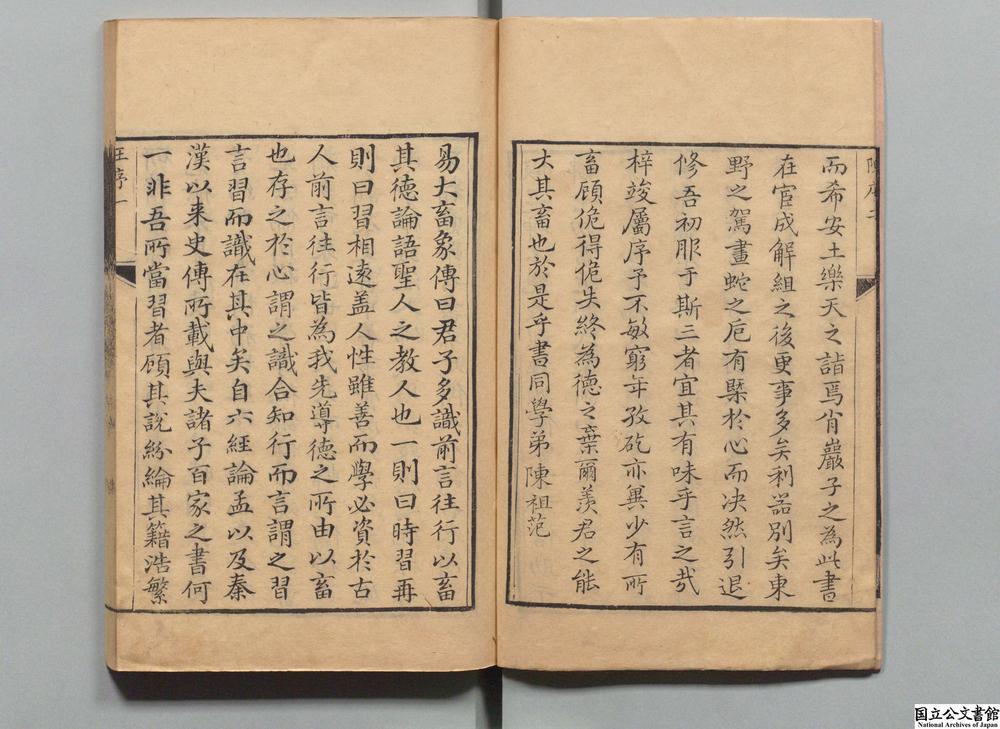 陳序二
而希安土樂天之詣焉肯巖子之為此書
在宦成解組之後更事多矣利器別矣東
野之駕畫蛇之巵有槩於心而决然引退
修吾初服于斯三者宜其有味乎言之㦲
梓竣屬序予不敏窮年孜矻亦兾少有所
畜顧佹得佹失終為德之棄爾羡君之能
大其畜也於是乎書同學弟陳祖范
易大畜象傳曰君子多識前言往行以畜
其德論語聖人之教人也一則曰時習再
則曰習相遠盖人性雖善而學必資於古
人前言往行皆為我先導德之所由以畜
也存之於心謂之識合知行而言謂之習
言習而識在其中矣自六經論孟以及秦
漢以来史傳所載與夫諸子百家之書何
一非吾所當習者顧其說紛綸其籍浩繁
王序一
国立公文書館
National Archives of Japan